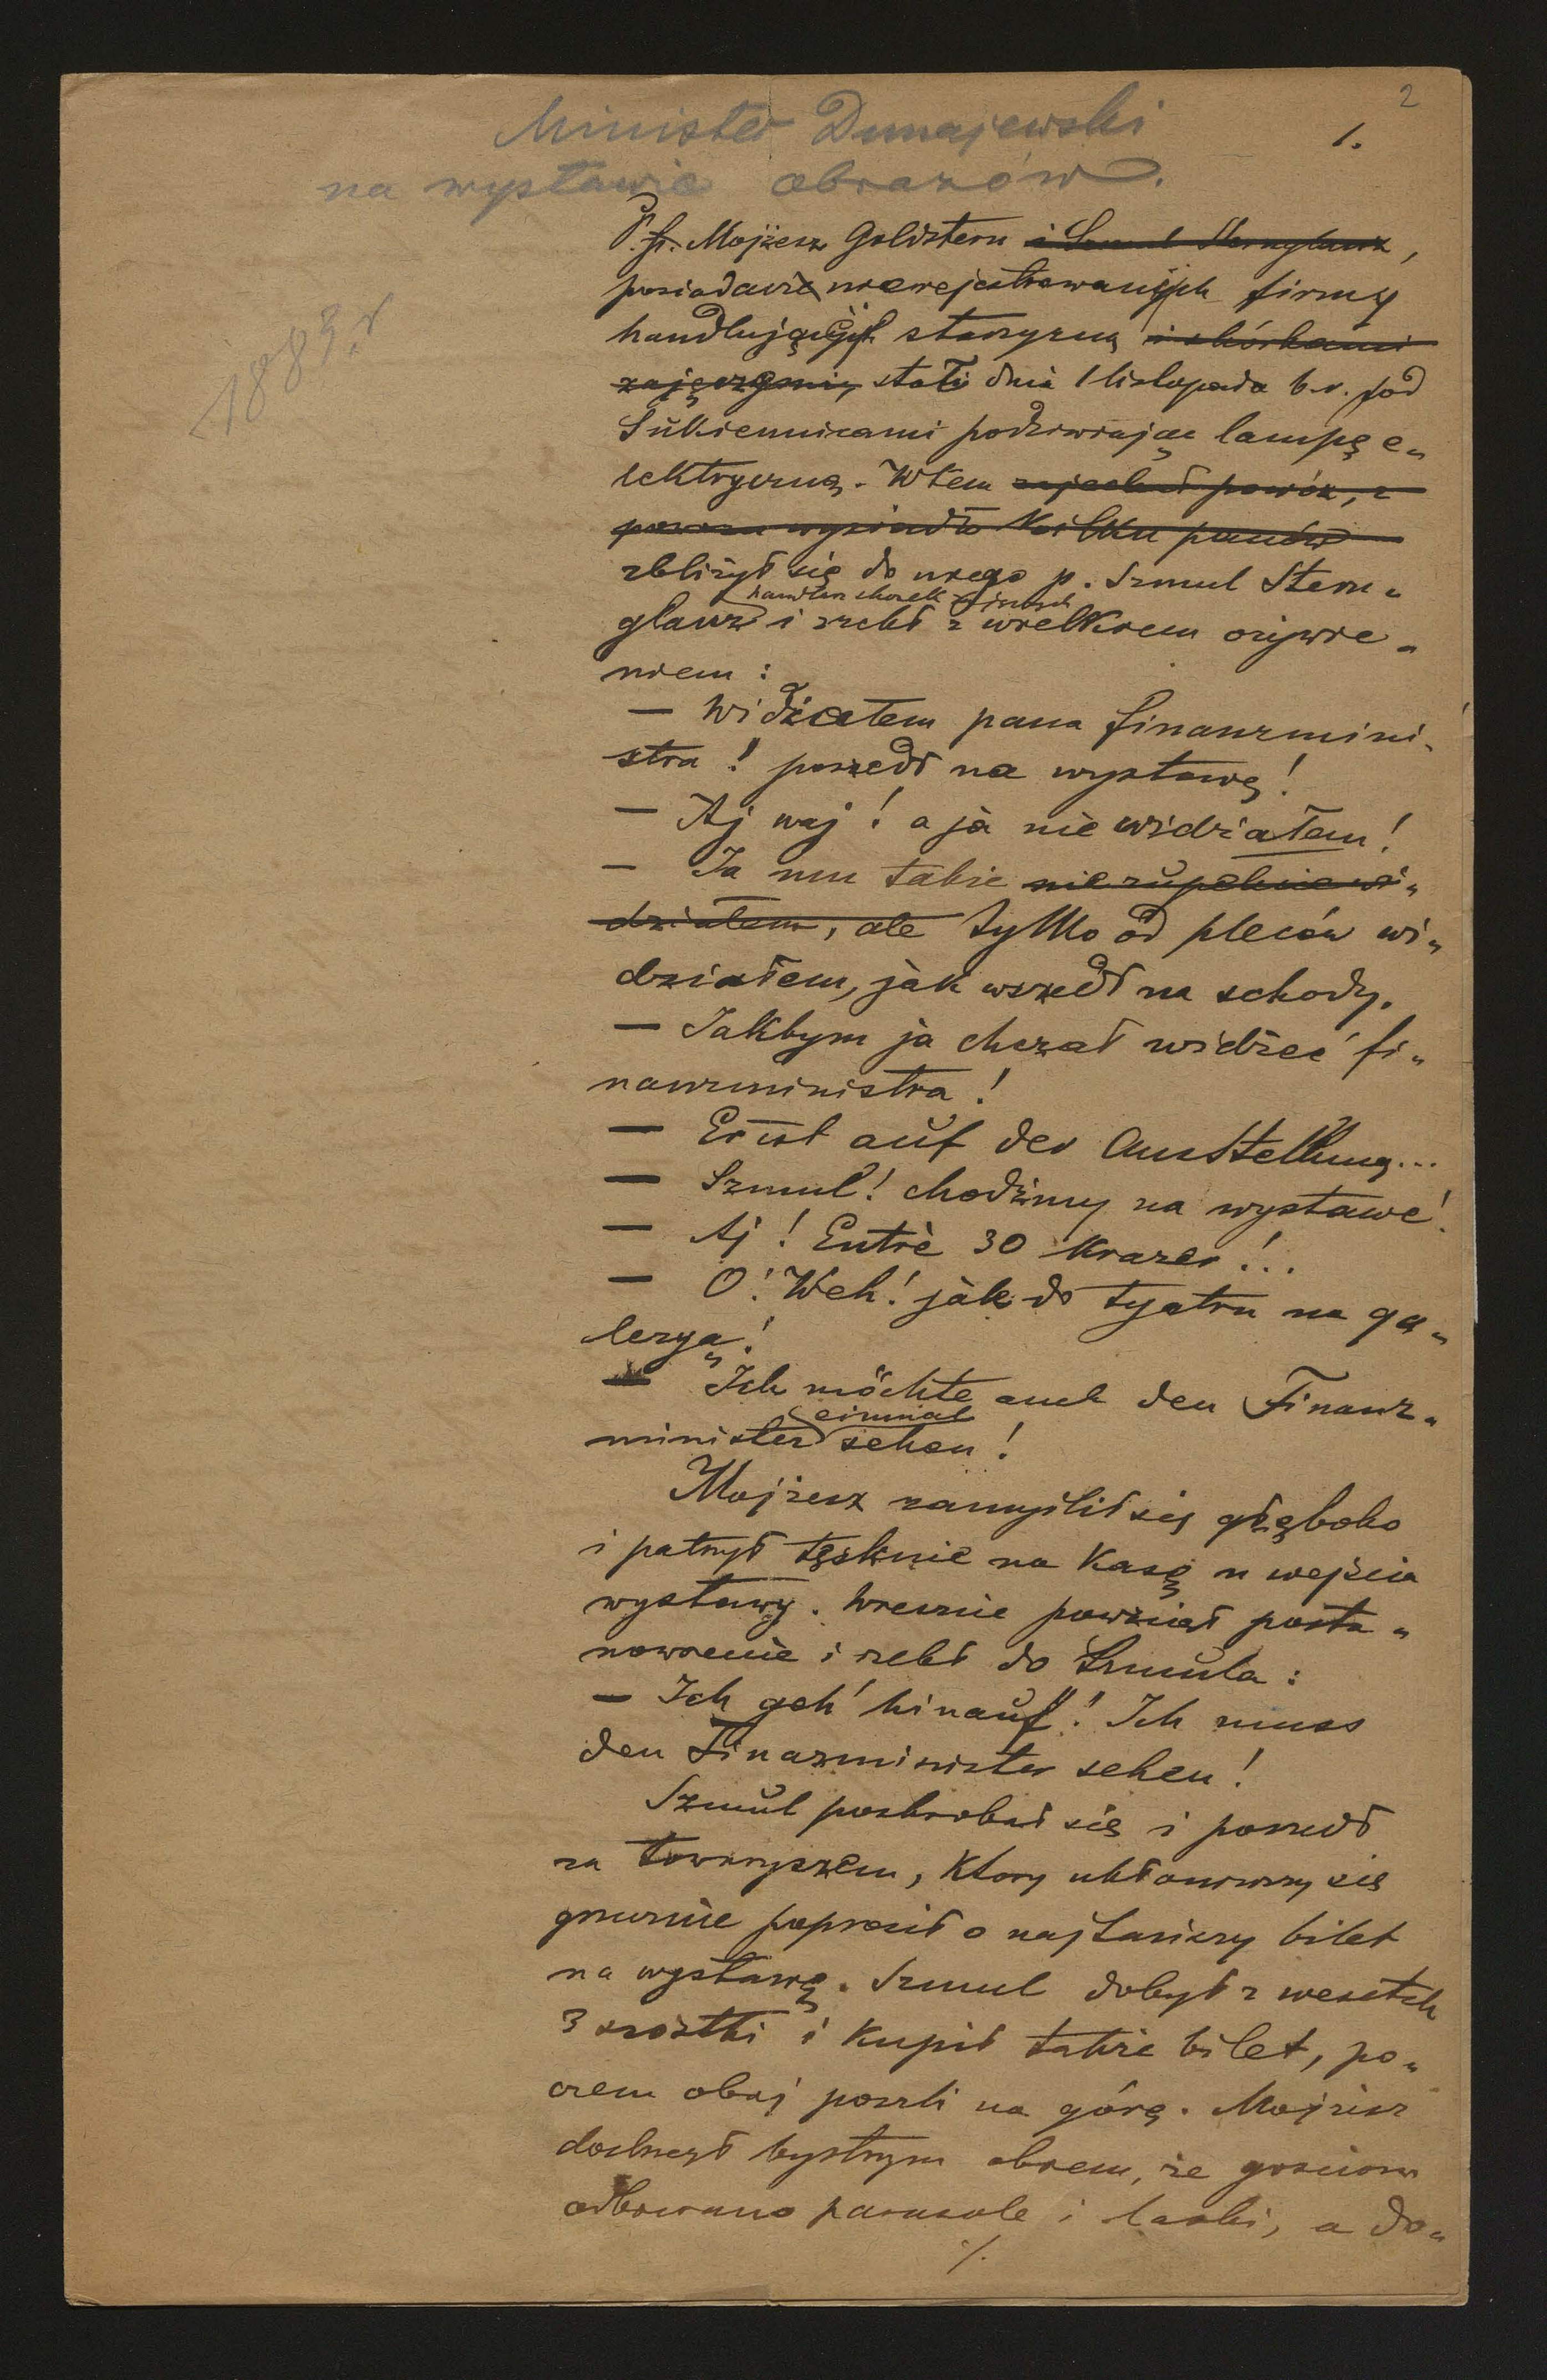 2
Minister Dunajewski
1.
na wystawie obrazów.
1883 r
P. Mojżesz Goldstern i Szmul Sternglanz,
posiadacz nierejestrowanych firmy
handlującej starzyzną i skórkami
zajęczymi, stał dnia 1 listopada b.r. pod
Sukiennicami podziwiając lampę e„
lektryczną. Wtem zajechał powóz, z
powozu wysiadło kilku panów
zbliżył się do niego p. Szmul Stern„
handlarz skórek
glanz i rzekł z wielkiem ożywie„
niem :
— Widziałem pana finanzmini„
stra! poszedł na wystawę!
— Aj waj! a ja nie widziałem!
— Ja mu także nie zupełnie wi„
działem, ale tylko od pleców wi„
działem, jak wszedł na schody.
— Jakbym ja chczał widzeć fi„
nanzministra!
— Er ist auf der Ausstellung...
— Szmul! chodźmy na wystawe!
— Aj! Entrè 30 Krazer!..
— O! Weh! jak do tyatru na ga„
leryą!
— Ich möchte auch den Finanz„
einmal
minister sehen!
Mojżesz zamyślił się głęboko
i patrzył tęsknie na Kasę u wejścia
wystawy. Wreszcie powziął posta„
nowienie i rzekł do Szmula :
— Ich geh' hinauf! Ich muss
den Finazminister sehen!
Szmul poskrobał się i poszedł
za towarzyszem, który ukłoniwszy się
grzecznie poprosił o najtańszy bilet
na wystawę. Szmul dobył z
3 szóstki i kupił także bilet, po„
czem obaj poszli na górę. Mojżesz
dostrzegł bystrym okiem, że gościom
odbierano parasole i laski, a do„
./.